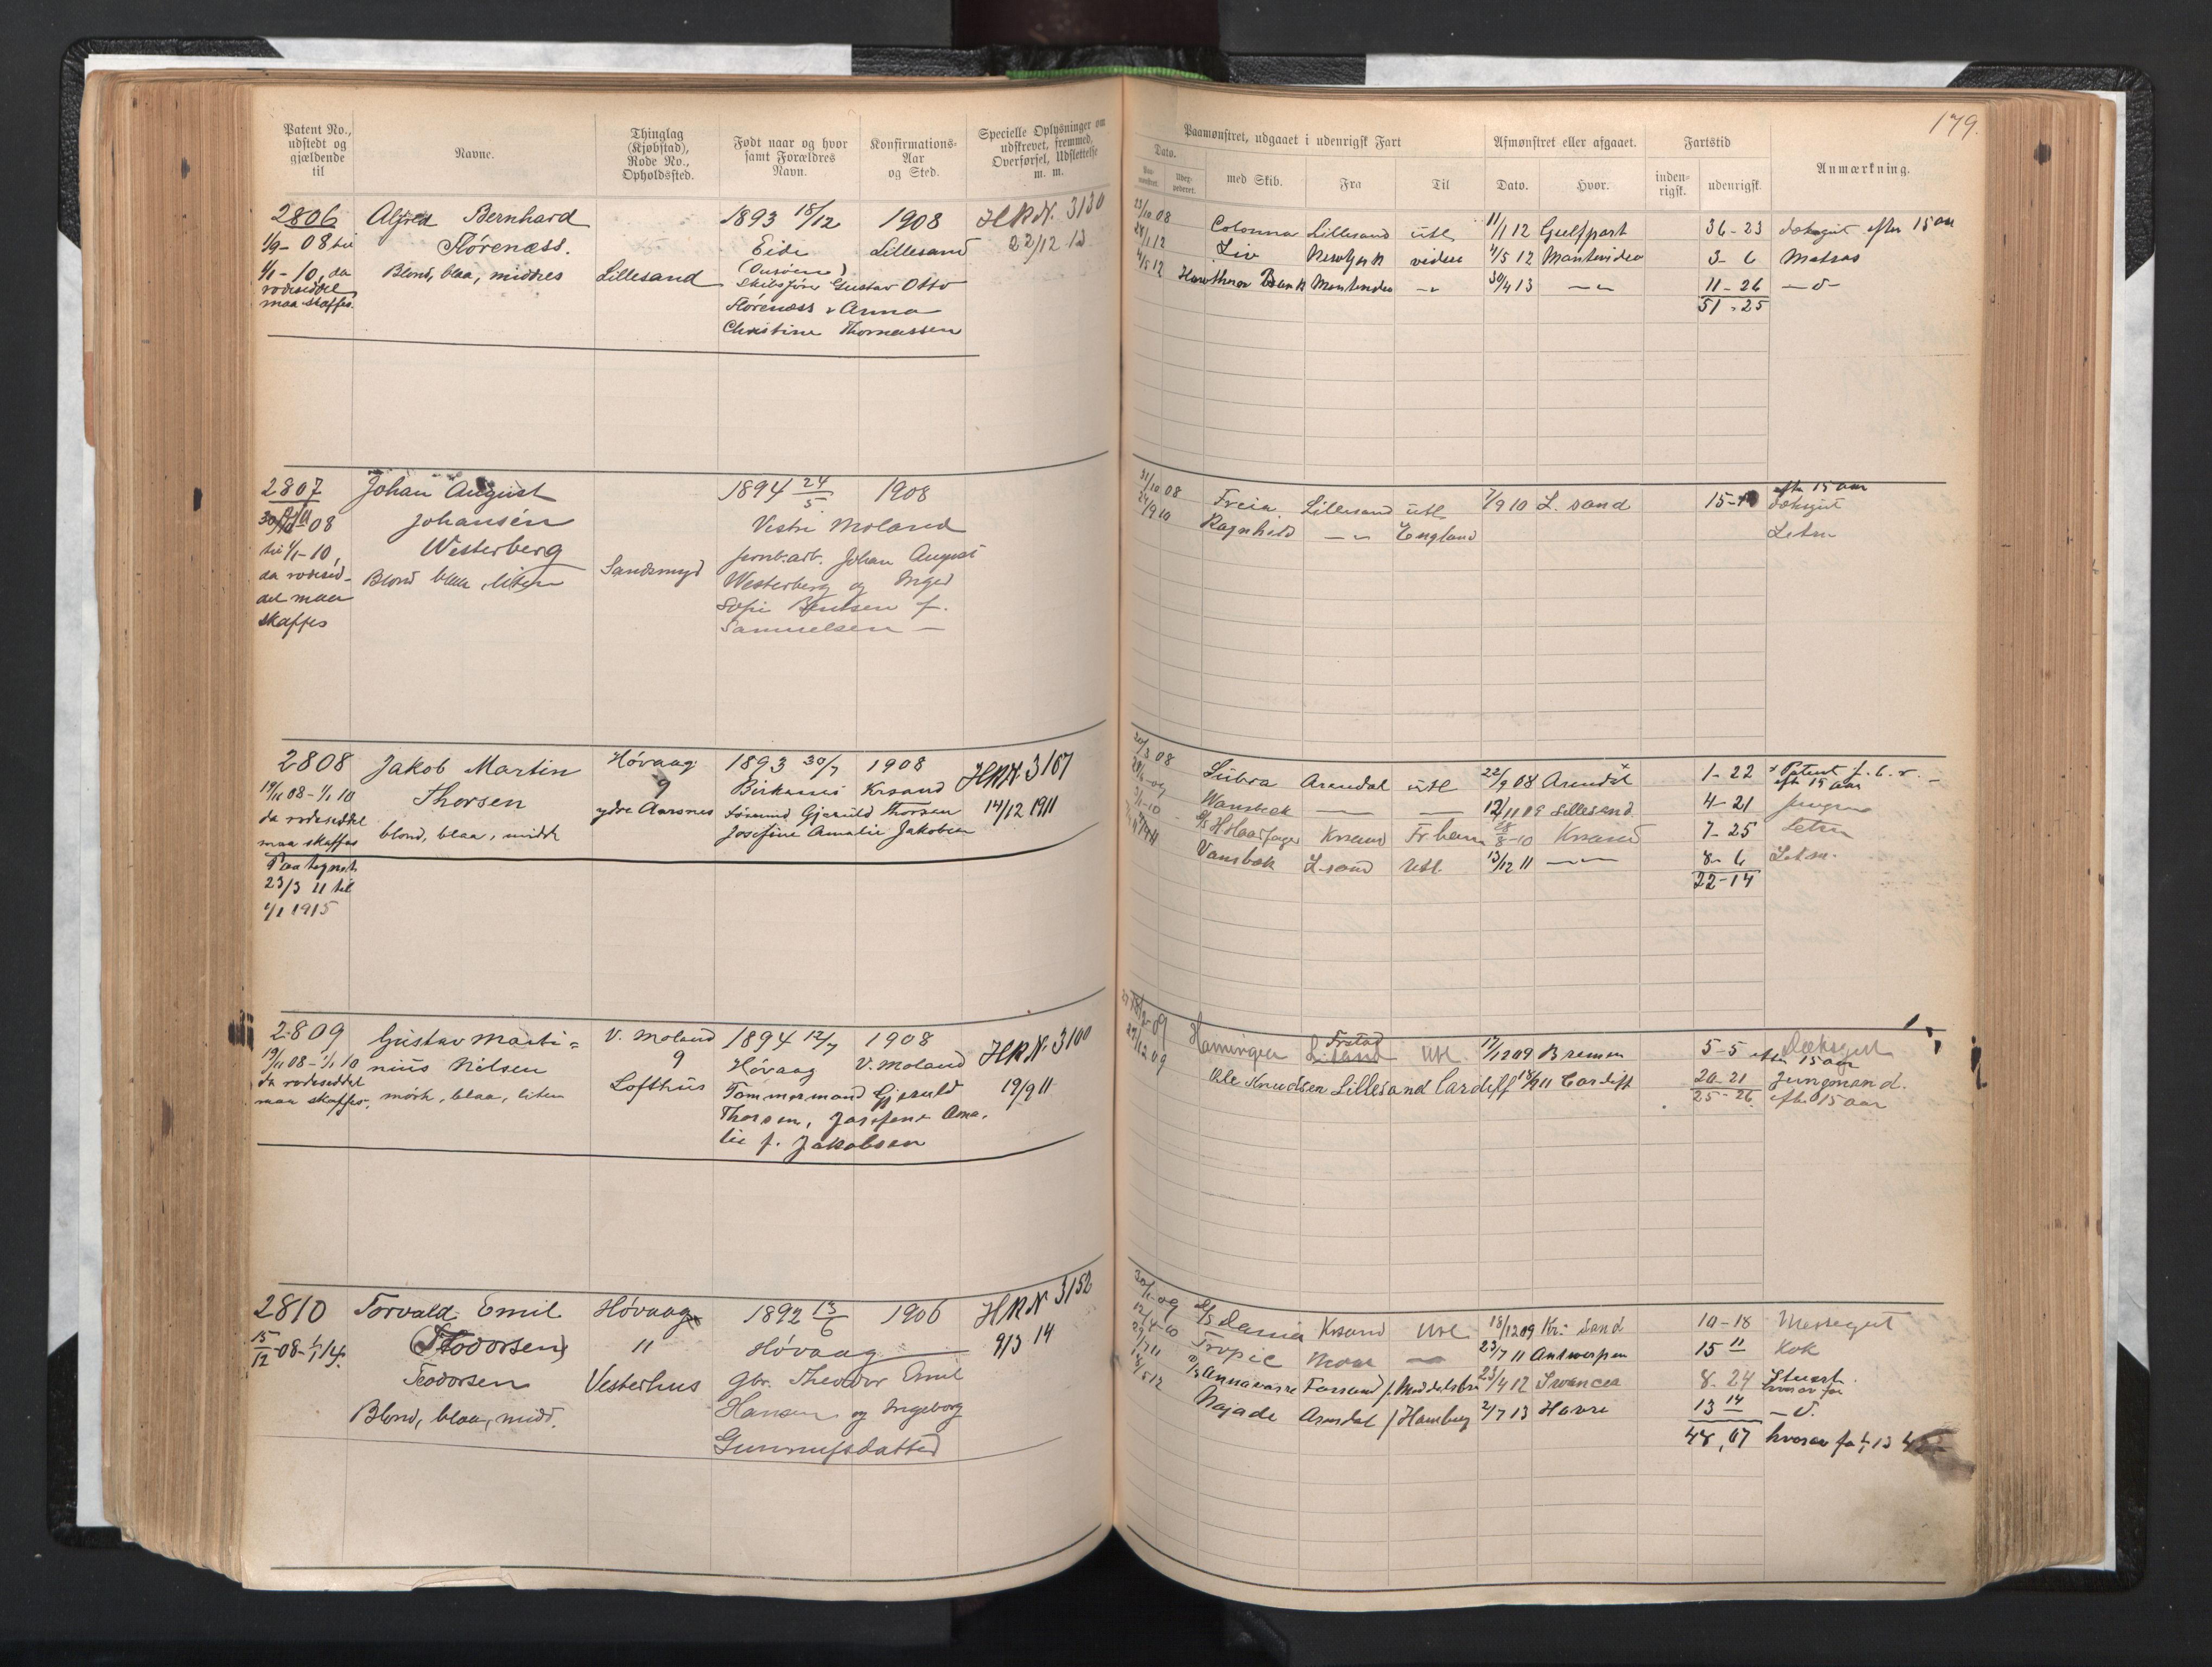 179.
Patent No., udstedt og gjældende til
Navne.
Thinglag (Kjøbstad), Rode No., Opholdssted.
Født naar og hvor samt Forældres Navn.
Konfirmations-Aar og Sted.
Specielle Oplysninger om udskrevet, fremmed, Overførsel, Udslettelse m. m.
Paamønstret, udgaaet i udenrigsk Fart
Dato.
med Skib.
Fra
Til
Afmønstret eller afgaaet.
Dato.
Hvor.
Fartstid
inden-rigsk.
udenrigsk.
Anmærkning.
2806
1/9-08 til
1/1-10, da
rodeseddel
maa skaffes.
Alfred Bernhard
Størenæss.
Blond, blaa, middels
Lillesand
1893 18/12
Eide
Skibsfører Gustav Otto
Størenæss & Anna
Christine Thomassen
1908
Lillesand
HRN. 3130
22/12 13
23/10 08 Colonna Lillesand utl 11/1 12 Gulfport 36-23 dæksgut efter 15 aar
Liv Newyork video 4/5 12 Montevideo 3-6 Matros
4/5 12 Hawthorn Bank Montevideo -"- 30/4 13 -"- 11-26 -d-
51-25
2807
08
til 1/1-10,
da rodesed-
del maa
skaffes
Johan August
Johansen
Westerberg
Blond blaa, liten
Sandsmyr
1894 24/5
Vestre Moland
Johan August
Westerberg og Inger
Sofie Bentsen f.
Samuelsen -
1908
31/10 08 Freia Lillesand utl 7/9 10 L.sand 15- efter 15 aar dæksgut
24/9 10 Ragnhild -"- England Letm
2808
19/11 08 - 1/1 10
da rodeseddel
maa skaffes
Paategnet
23/3 11 til
1/1 1915
Jakob Martin
Thorsen
blond, blaa, midd
Høvaag
9
ydre Aarsnes
1893 30/7
Birkenes
Tømmd Gjeruld Thorsen
Josefine Amalie Jakobsen
1908
Krsand
HRN. 3167
14/12 1911
20/3 08 Arendal utl 22/9 08 Arendal 1-22 x Patent f. 6. v. efter 15 aar
Wansbeck 12/11 09 Lillesand 4-21 jungm
D/S H Haarfager Krsand Fr havn 28/8-10 Krsand 7-25 Letm
Vansbek L-sand utl 13/12 11 -"- 8-6 Letm.
22-14
2809
19/11 08 - 1/1 10
da rodeseddel
maa skaffes.
Gustav Marti=
nius Nilsen
mørk, blaa, liten
V. Moland
9
Lofthus
1894 12/7
Høvaag
Tømmermand Gjeruld
Thorsen, Josefene Ama.
lie f. Jakobsen
1908
V. Moland
HRN. 3100
19/9 11
Hamingen Lsand Frstad utl 17/12 09 Bremen 5-5 Dæksgut efter 15 aar
29/12 09 Ole Knudsen Lillesand Cardiff 18/9 11 Cardiff 20-21 Jungmand.
25-26 efter 15 aar
2810
15/12-08-1/1 14.
Torvald Emil
(Teodorsen)
Teodorsen
Blond, blaa, midd.
Høvaag
11
Vesterhus
1892 13/6
Høvaag
gbr. Theodor Emil
Hansen og Ingeborg
Gunnufsdatter
1906
HRN 3152
9/3 14
30/1-09 D/S Dania Krsand utl 18/12 09 Kr: sand 10-18 Messegut
12/4-10 Tropic Moss 23/7 11 Antwerpen 15 11 Kok
29/7 11 D/S Annavarre Farsund f. Middelsbro 23/4 12 Swancea 8-24 Stuert.
8/5 12 Najade Arendal f Hamburg 2/7 13 Havre 13 14 -d.
48,07 hvorav fa